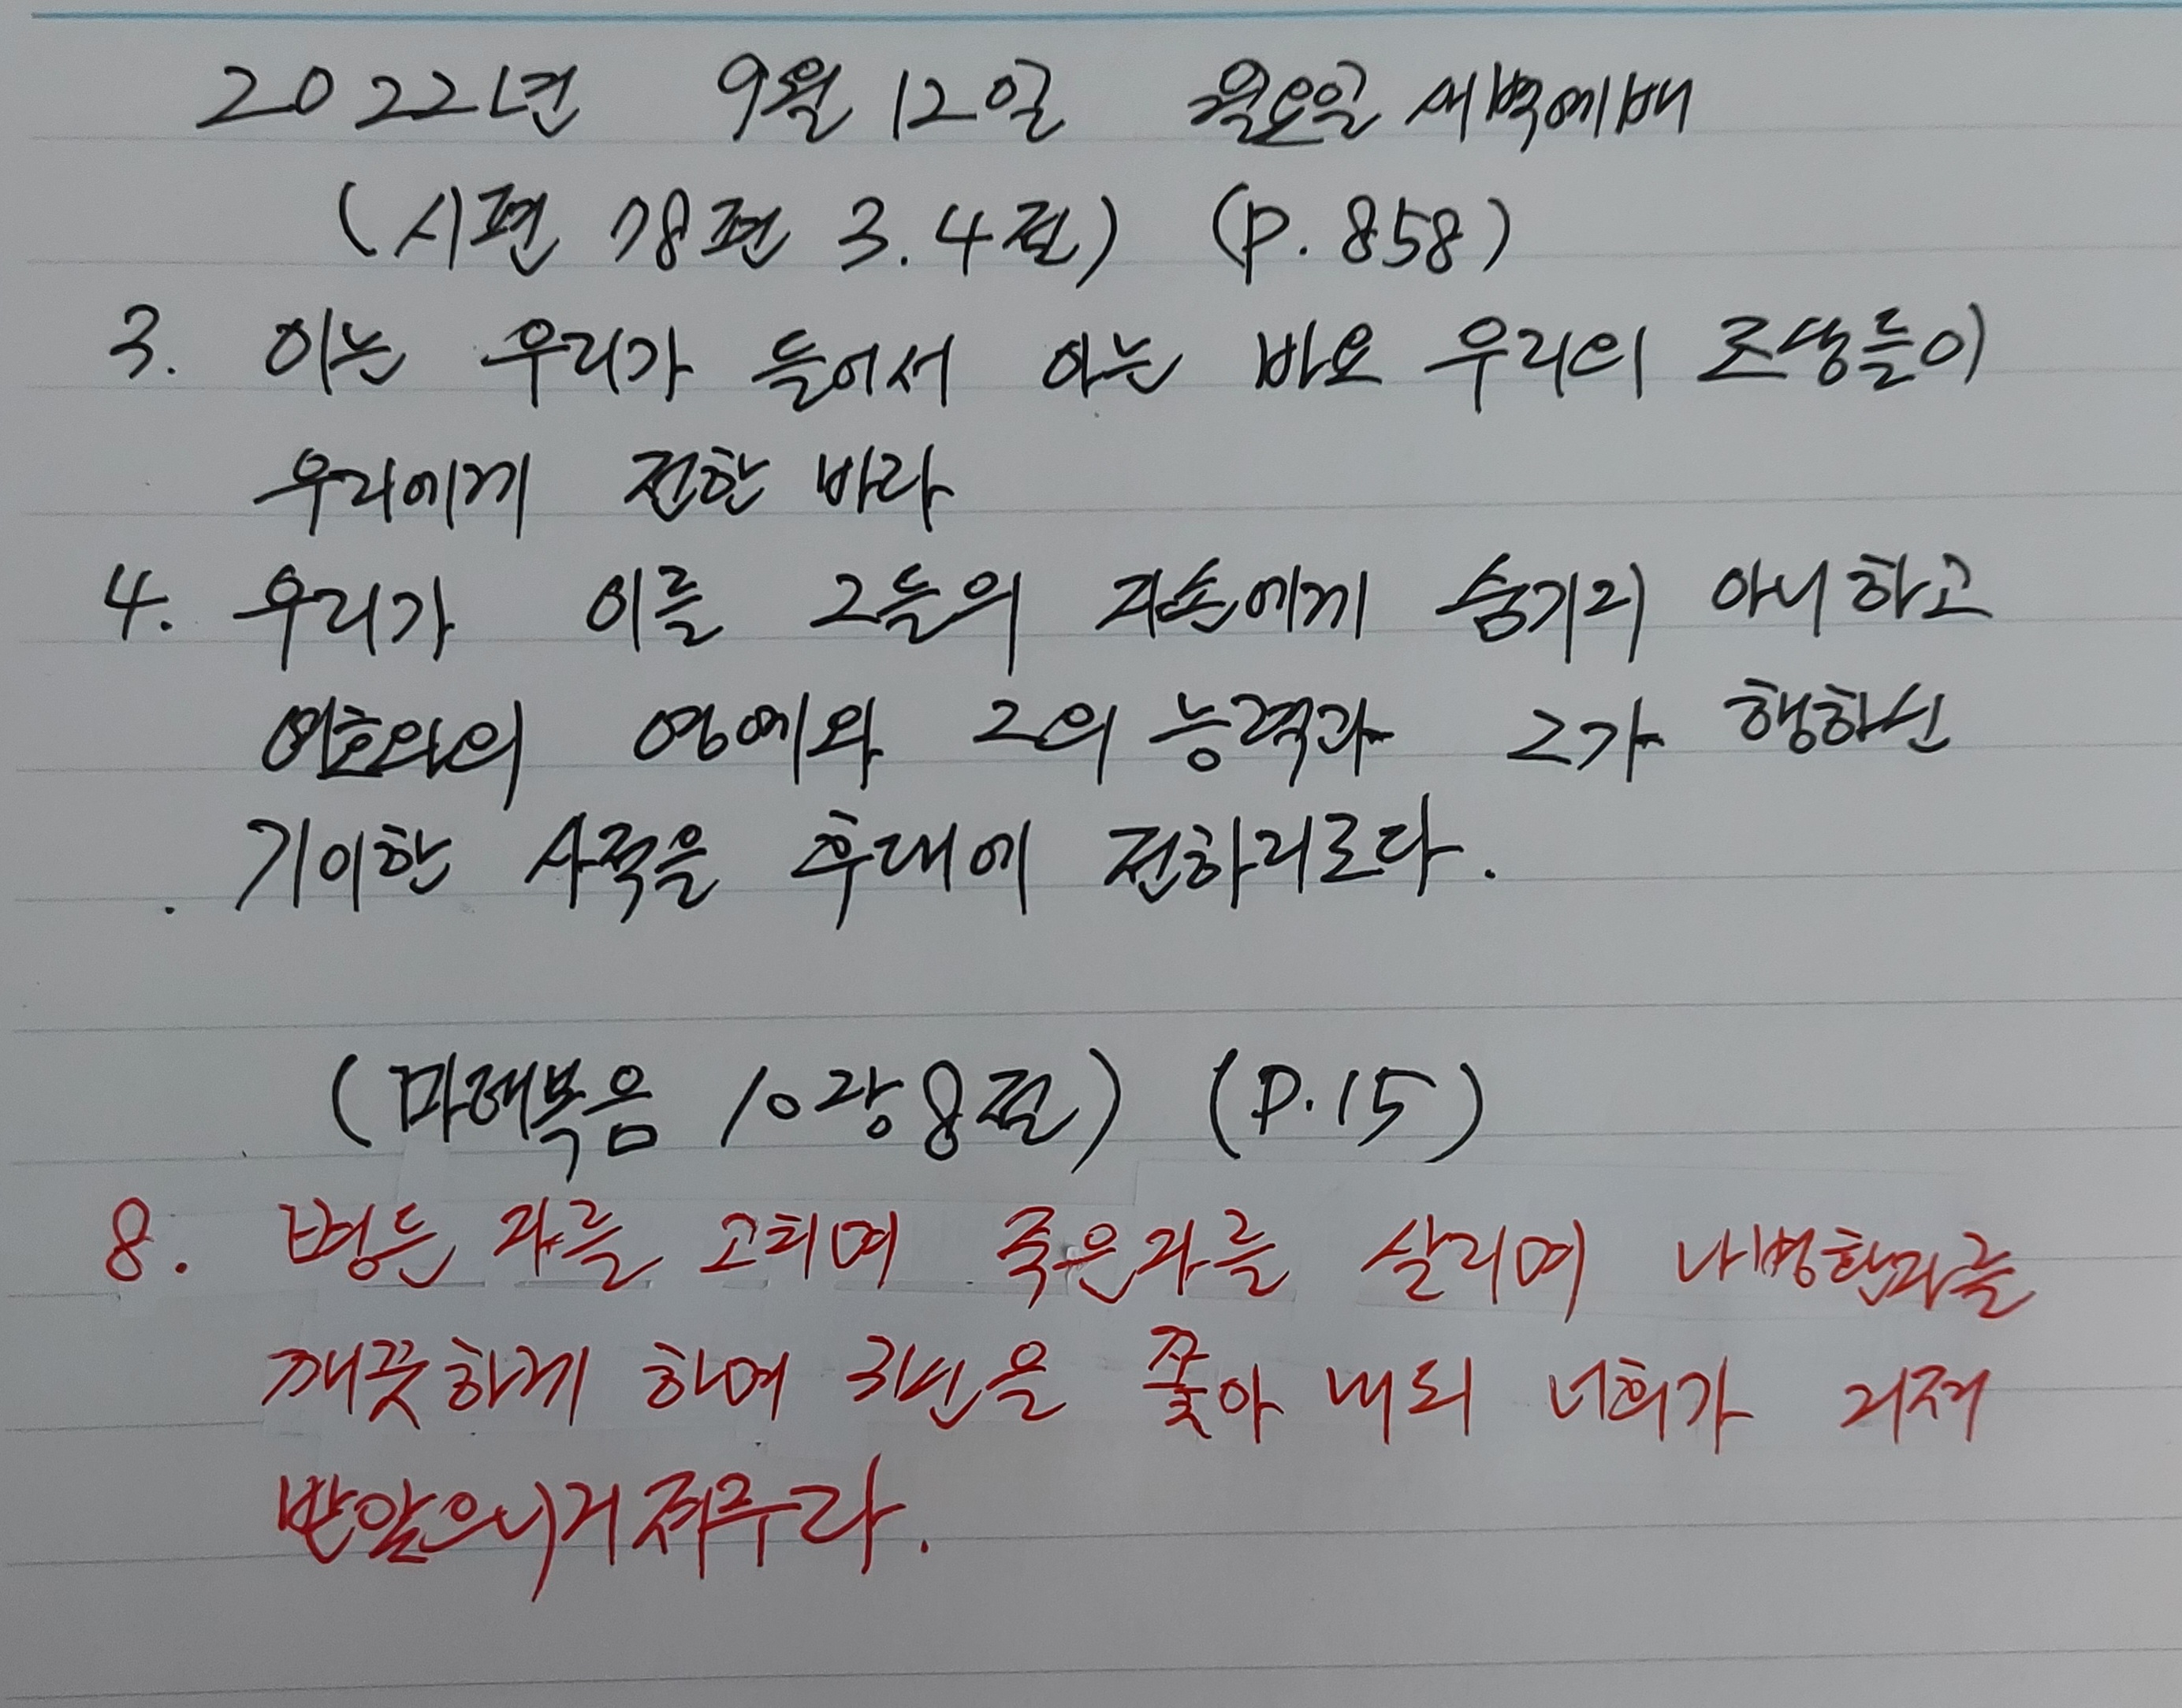 2022년 9월 12일 월요일 새벽예배
(시편 78편 3.4절) (P.858)
3. 이는 우리가 들어서 아는 바요 우리의 조상들이
우리에게 전한 바라
4. 우리가 이를 그들의 자손에게 숨기지 아니하고
여호와의 영예와 그의 능력과 그가 행하신
기이한 사적을 후대에 전하리로다.
(마태복음 10장 8절) (P.15)
8. 병든 자를 고치며 죽은자를 살리며 나병환자를
깨끗하게 하며 귀신을 쫓아 내되 너희가 거저
받았으니 거저주라.